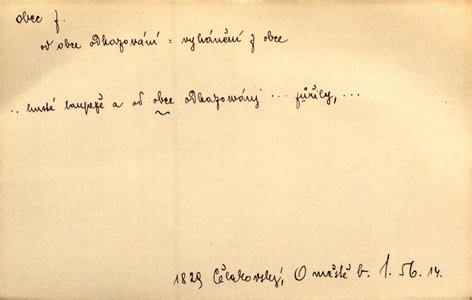 obec f.
od obce odkazování = vyhánění z obce
.. laupeže a od obce odkazowáni ... ...
1829 Čelakovský, O městě b. 1. 56. 14.